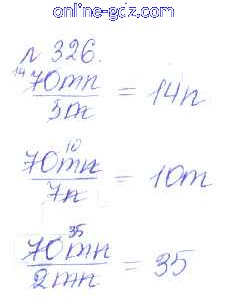 online-gdz.com
№ 326.
14 70mn / 5m = 14n
70mn 10 / 7n = 10m
70mn 35 / 2mn = 35